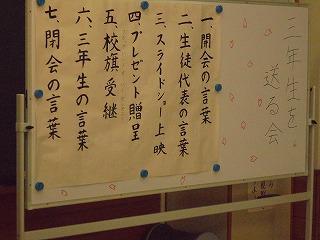 三年生を
送る会
一、開会の言葉
二、生徒代表の言葉
三、スライドショー上映
四、プレゼント贈呈
五、校旗受継
六、三年生の言葉
七、閉会の言葉